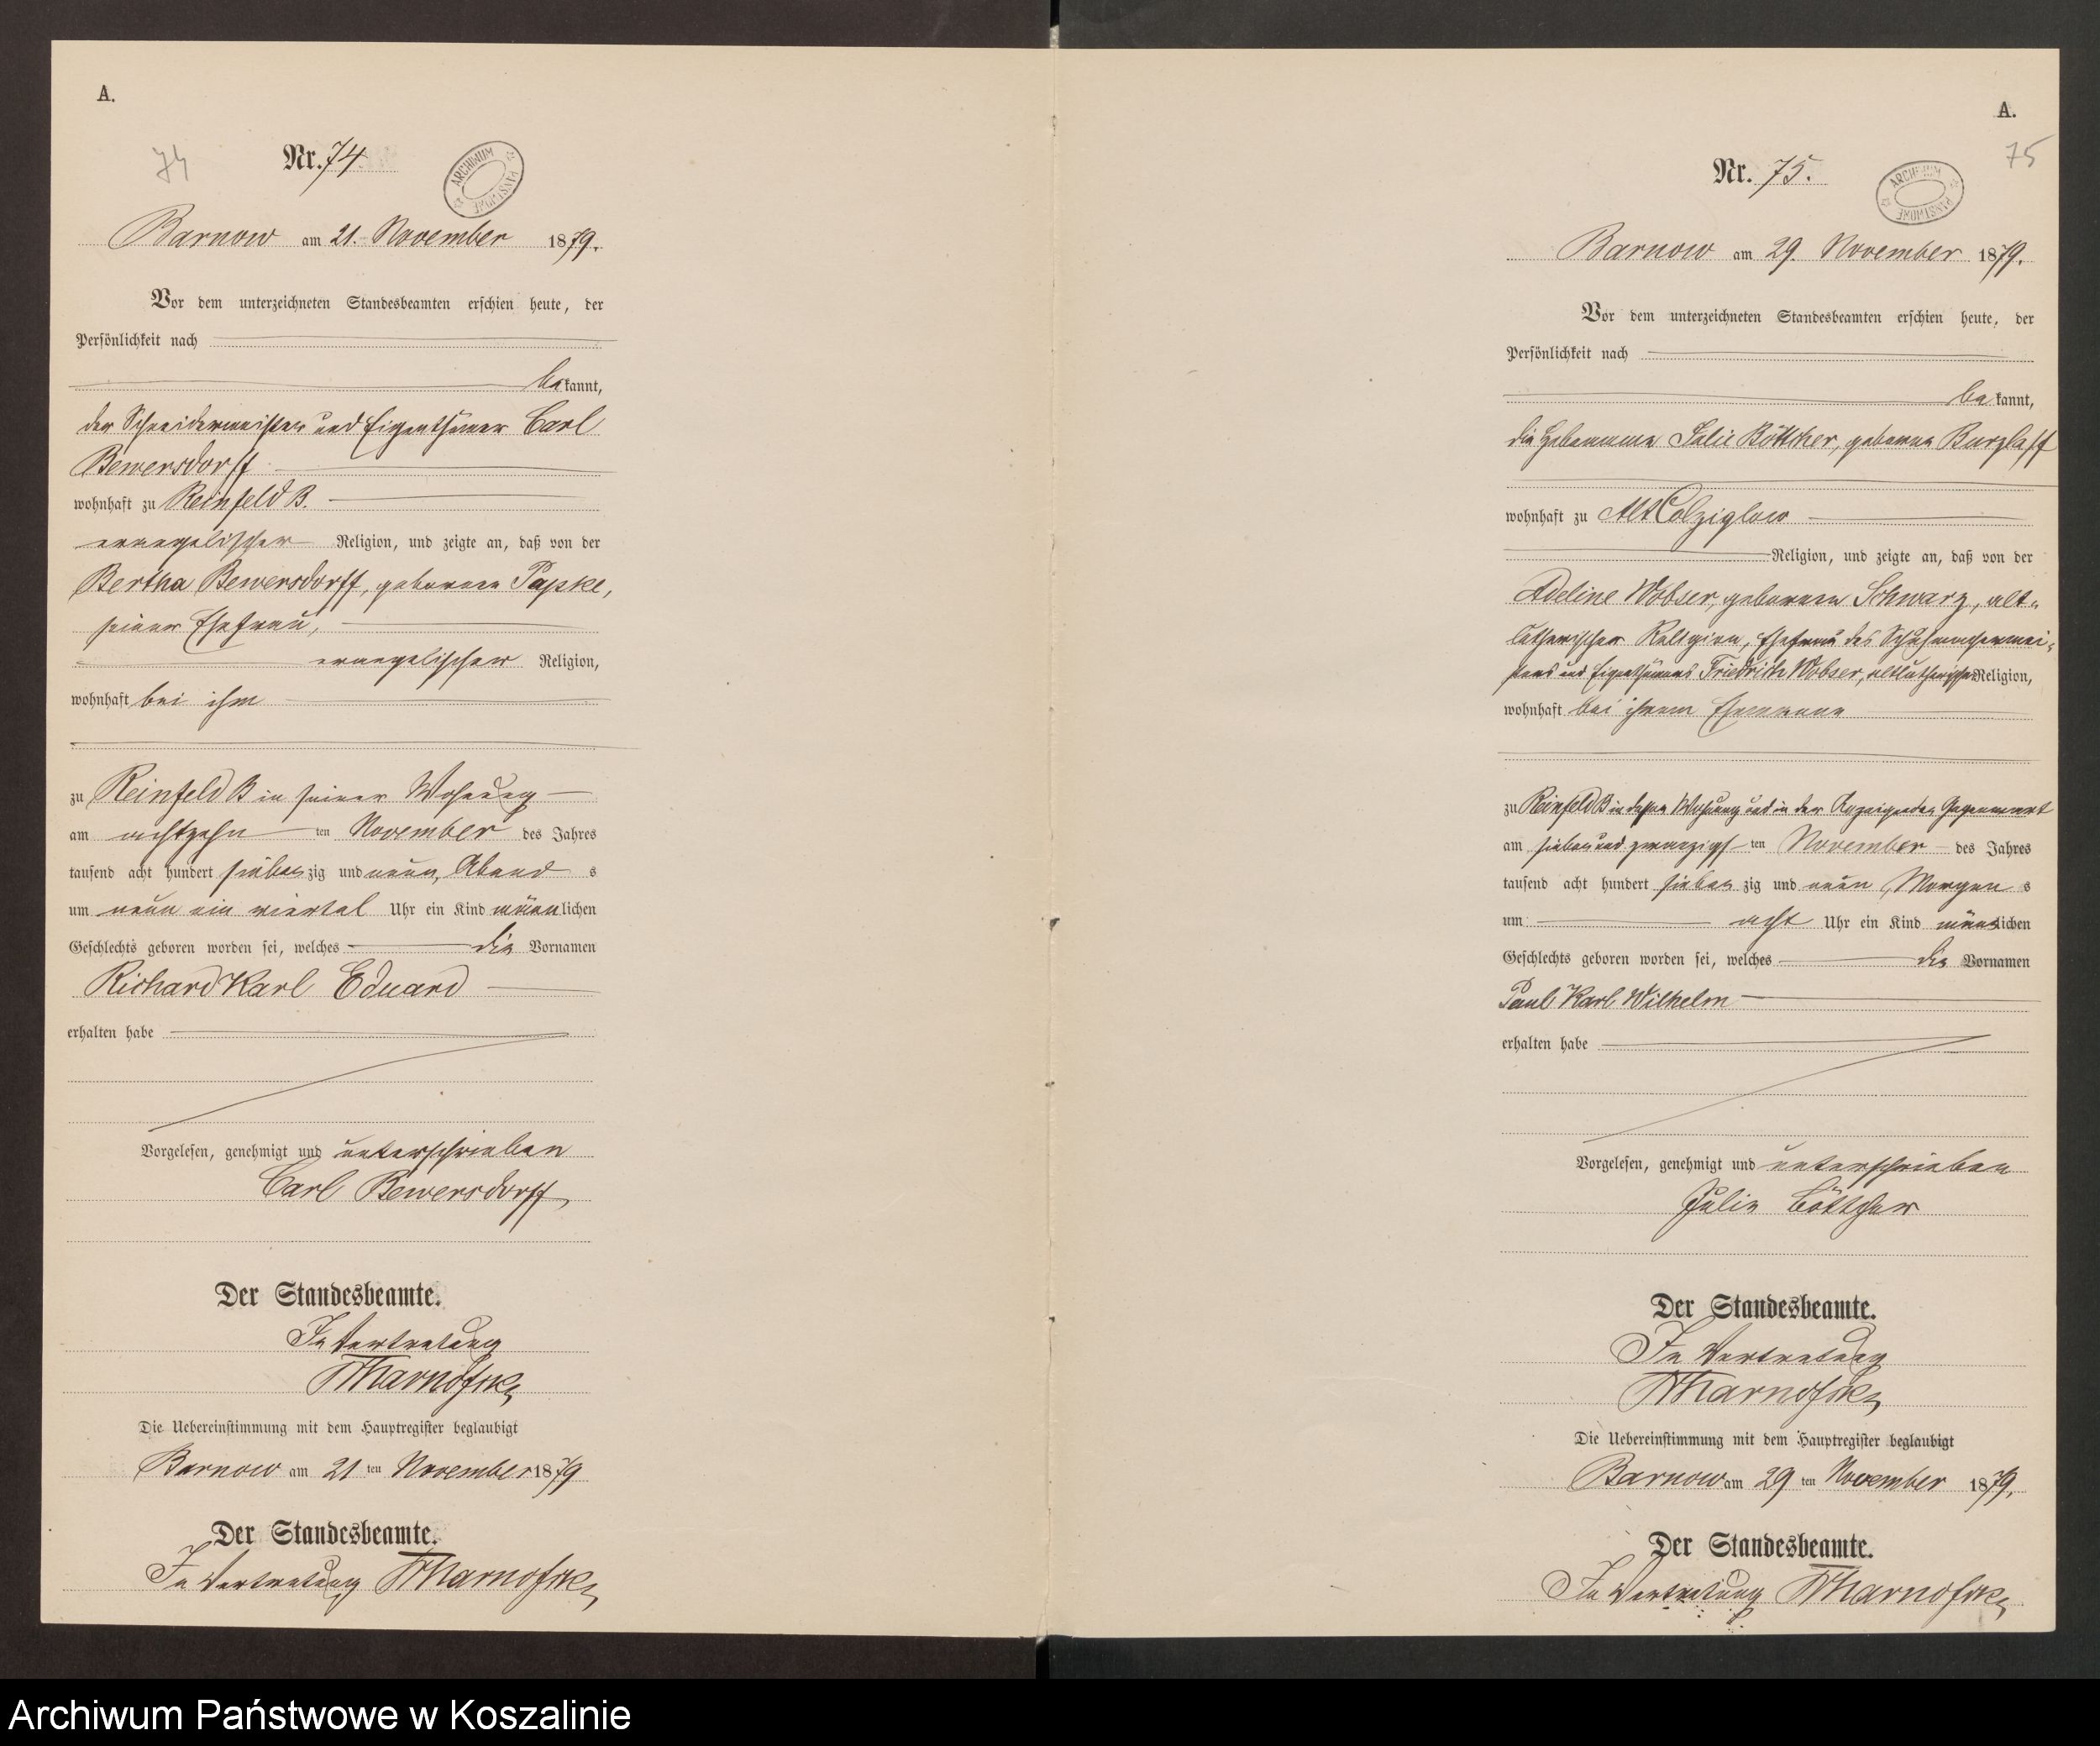 A.
74
Nr. 74
ARCHIWUM PAŃSTWOWE
Barnow am 21. November 1879.
Vor dem unterzeichneten Standesbeamten erschien heute, der
Persönlichkeit nach
bekannt,
der Schneidermeister und Eigenthümer Carl
Bewersdorff
wohnhaft zu Reinfeld B.
evangelischer Religion, und zeigte an, daß von der
Bertha Bewersdorff, geborenen Papke,
seiner Ehefrau,
evangelischer Religion,
wohnhaft bei ihm
zu Reinfeld B in seiner Wohnung
am achtzehn ten November des Jahres
tausend acht hundert siebenzig und neun, Abend s
um neun ein viertel Uhr ein Kind männlichen
Geschlechts geboren worden sei, welches die Vornamen
Richard Karl Eduard
erhalten habe
Vorgelesen, genehmigt und unterschrieben
Carl Bewersdorff
Der Standesbeamte.
In Vertretung
Die Uebereinstimmung mit dem Hauptregister beglaubigt
Barnow am 21 ten November 1879
Der Standesbeamte.
In Vertretung
A.
75
Nr. 75.
ARCHIWUM PAŃSTWOWE
Barnow am 29. November 1879.
Vor dem unterzeichneten Standesbeamten erschien heute, der
Persönlichkeit nach
bekannt,
die Hebamme Julie Böttcher, geborene Burzlaff
wohnhaft zu Alt Colziglow
Religion, und zeigte an, daß von der
Adeline Wobser, geborenen Schwarz, alt-
lutherischer Religion, Ehefrau des Schuhmachermei-
sters und Eigenthümers Friedrich Wobser, altlutherischer Religion,
wohnhaft bei ihrem Ehemann
zu Reinfeld B in dessen Wohnung und in der Anzeigenden Gegenwart
am siebenundzwanzigs ten November des Jahres
tausend acht hundert siebenzig und neun Morgen s
um acht Uhr ein Kind männlichen
Geschlechts geboren worden sei, welches die Vornamen
Paul Karl Wilhelm
erhalten habe
Vorgelesen, genehmigt und unterschrieben
Julie Böttcher
Der Standesbeamte.
In Vertretung
Die Uebereinstimmung mit dem Hauptregister beglaubigt
Barnow am 29 ten November 1879.
Der Standesbeamte.
In Vertretung
Archiwum Państwowe w Koszalinie